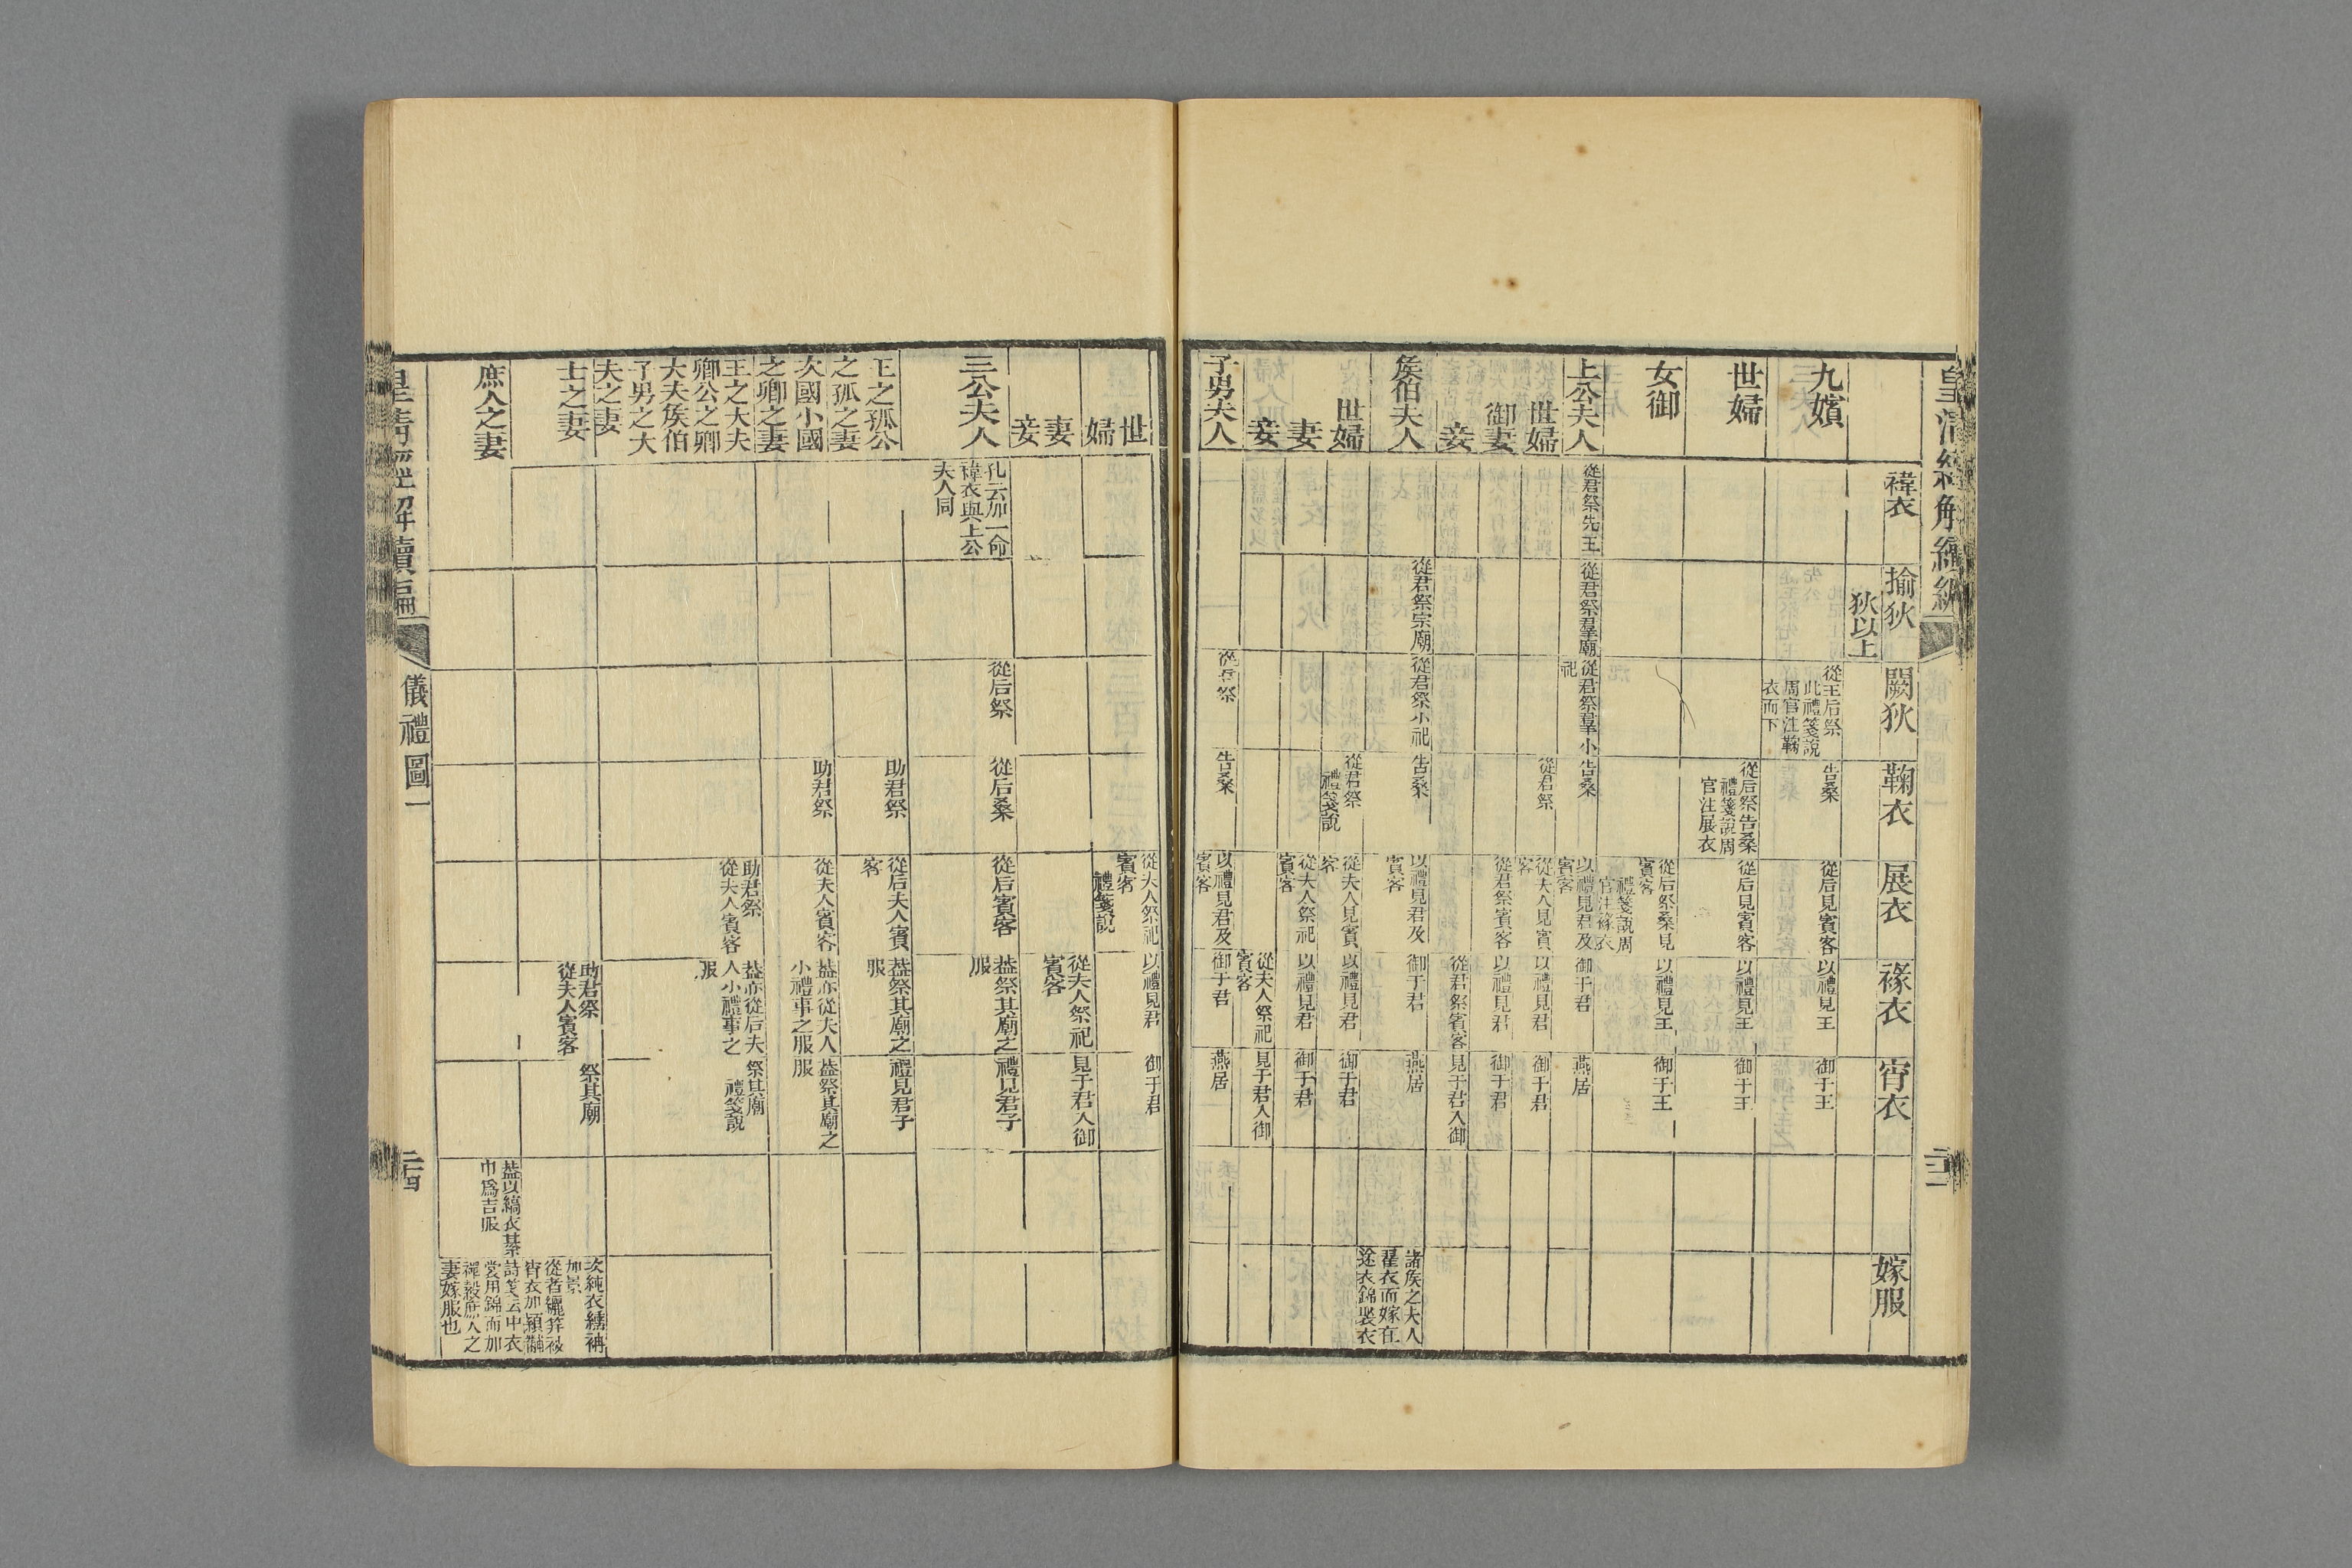 皇清經解續編
儀禮圖一
褘衣
揄狄
狄以上
闕狄
鞠衣
展衣
褖衣
宵衣
嫁服
九嬪
從王后祭
此禮箋說
周官注鞠
衣而下
告桑
從后見賓客
以禮見王
御于王
世婦
從后祭告桑
禮箋說周
官注展衣
從后見賓客
以禮見王
御于王
女御
從后祭桑見
賓客
禮箋說周
官注褖衣
以禮見王
御于王
上公夫人
從君祭先王
從君祭羣廟
從君祭羣小
祀
告桑
以禮見君及
賓客
御于君
燕居
世婦
從君祭
從夫人見賓
客
以禮見君
御于君
御妻
從君祭賓客
以禮見君
御于君
妾
從君祭賓客
見于君入御
矦伯夫人
從君祭宗廟
從君祭小祀
告桑
以禮見君及
賓客
御于君
燕居
諸矦之夫人
翟衣而嫁在
途衣錦褧衣
世婦
從君祭
禮箋說
從夫人見賓
客
以禮見君
御于君
妻
從夫人祭祀
賓客
以禮見君
御于君
妾
從夫人祭祀
賓客
見于君入御
子男夫人
從君祭
告桑
以禮見君及
賓客
御于君
燕居
世婦
從夫人祭祀
賓客
禮箋說
以禮見君
御于君
妻
從夫人祭祀
賓客
見于君入御
妾
三公夫人
孔云加一命
褘衣與上公
夫人同
從后祭
從后桑
從后賓客
葢祭其廟之
服
禮見君子
王之孤公
之孤之妻
助君祭
從后夫人賓
客
葢祭其廟之
服
禮見君子
次國小國
之卿之妻
助君祭
從夫人賓客
葢亦從夫人
小禮事之服
葢祭其廟之
服
王之大夫
卿公之卿
大夫矦伯
子男之大
夫之妻
助君祭
從夫人賓客
葢亦從后夫
人小禮事之
服
祭其廟
禮箋說
士之妻
助君祭
從夫人賓客
祭其廟
次純衣纁袡
加景
從者纚笄袗
宵衣加顈黼
詩箋云中衣
裳用錦而加
襌縠庶人之
妻嫁服也
庶人之妻
葢以縞衣綦
巾爲吉服
皇清經解續編
儀禮圖一
二十四